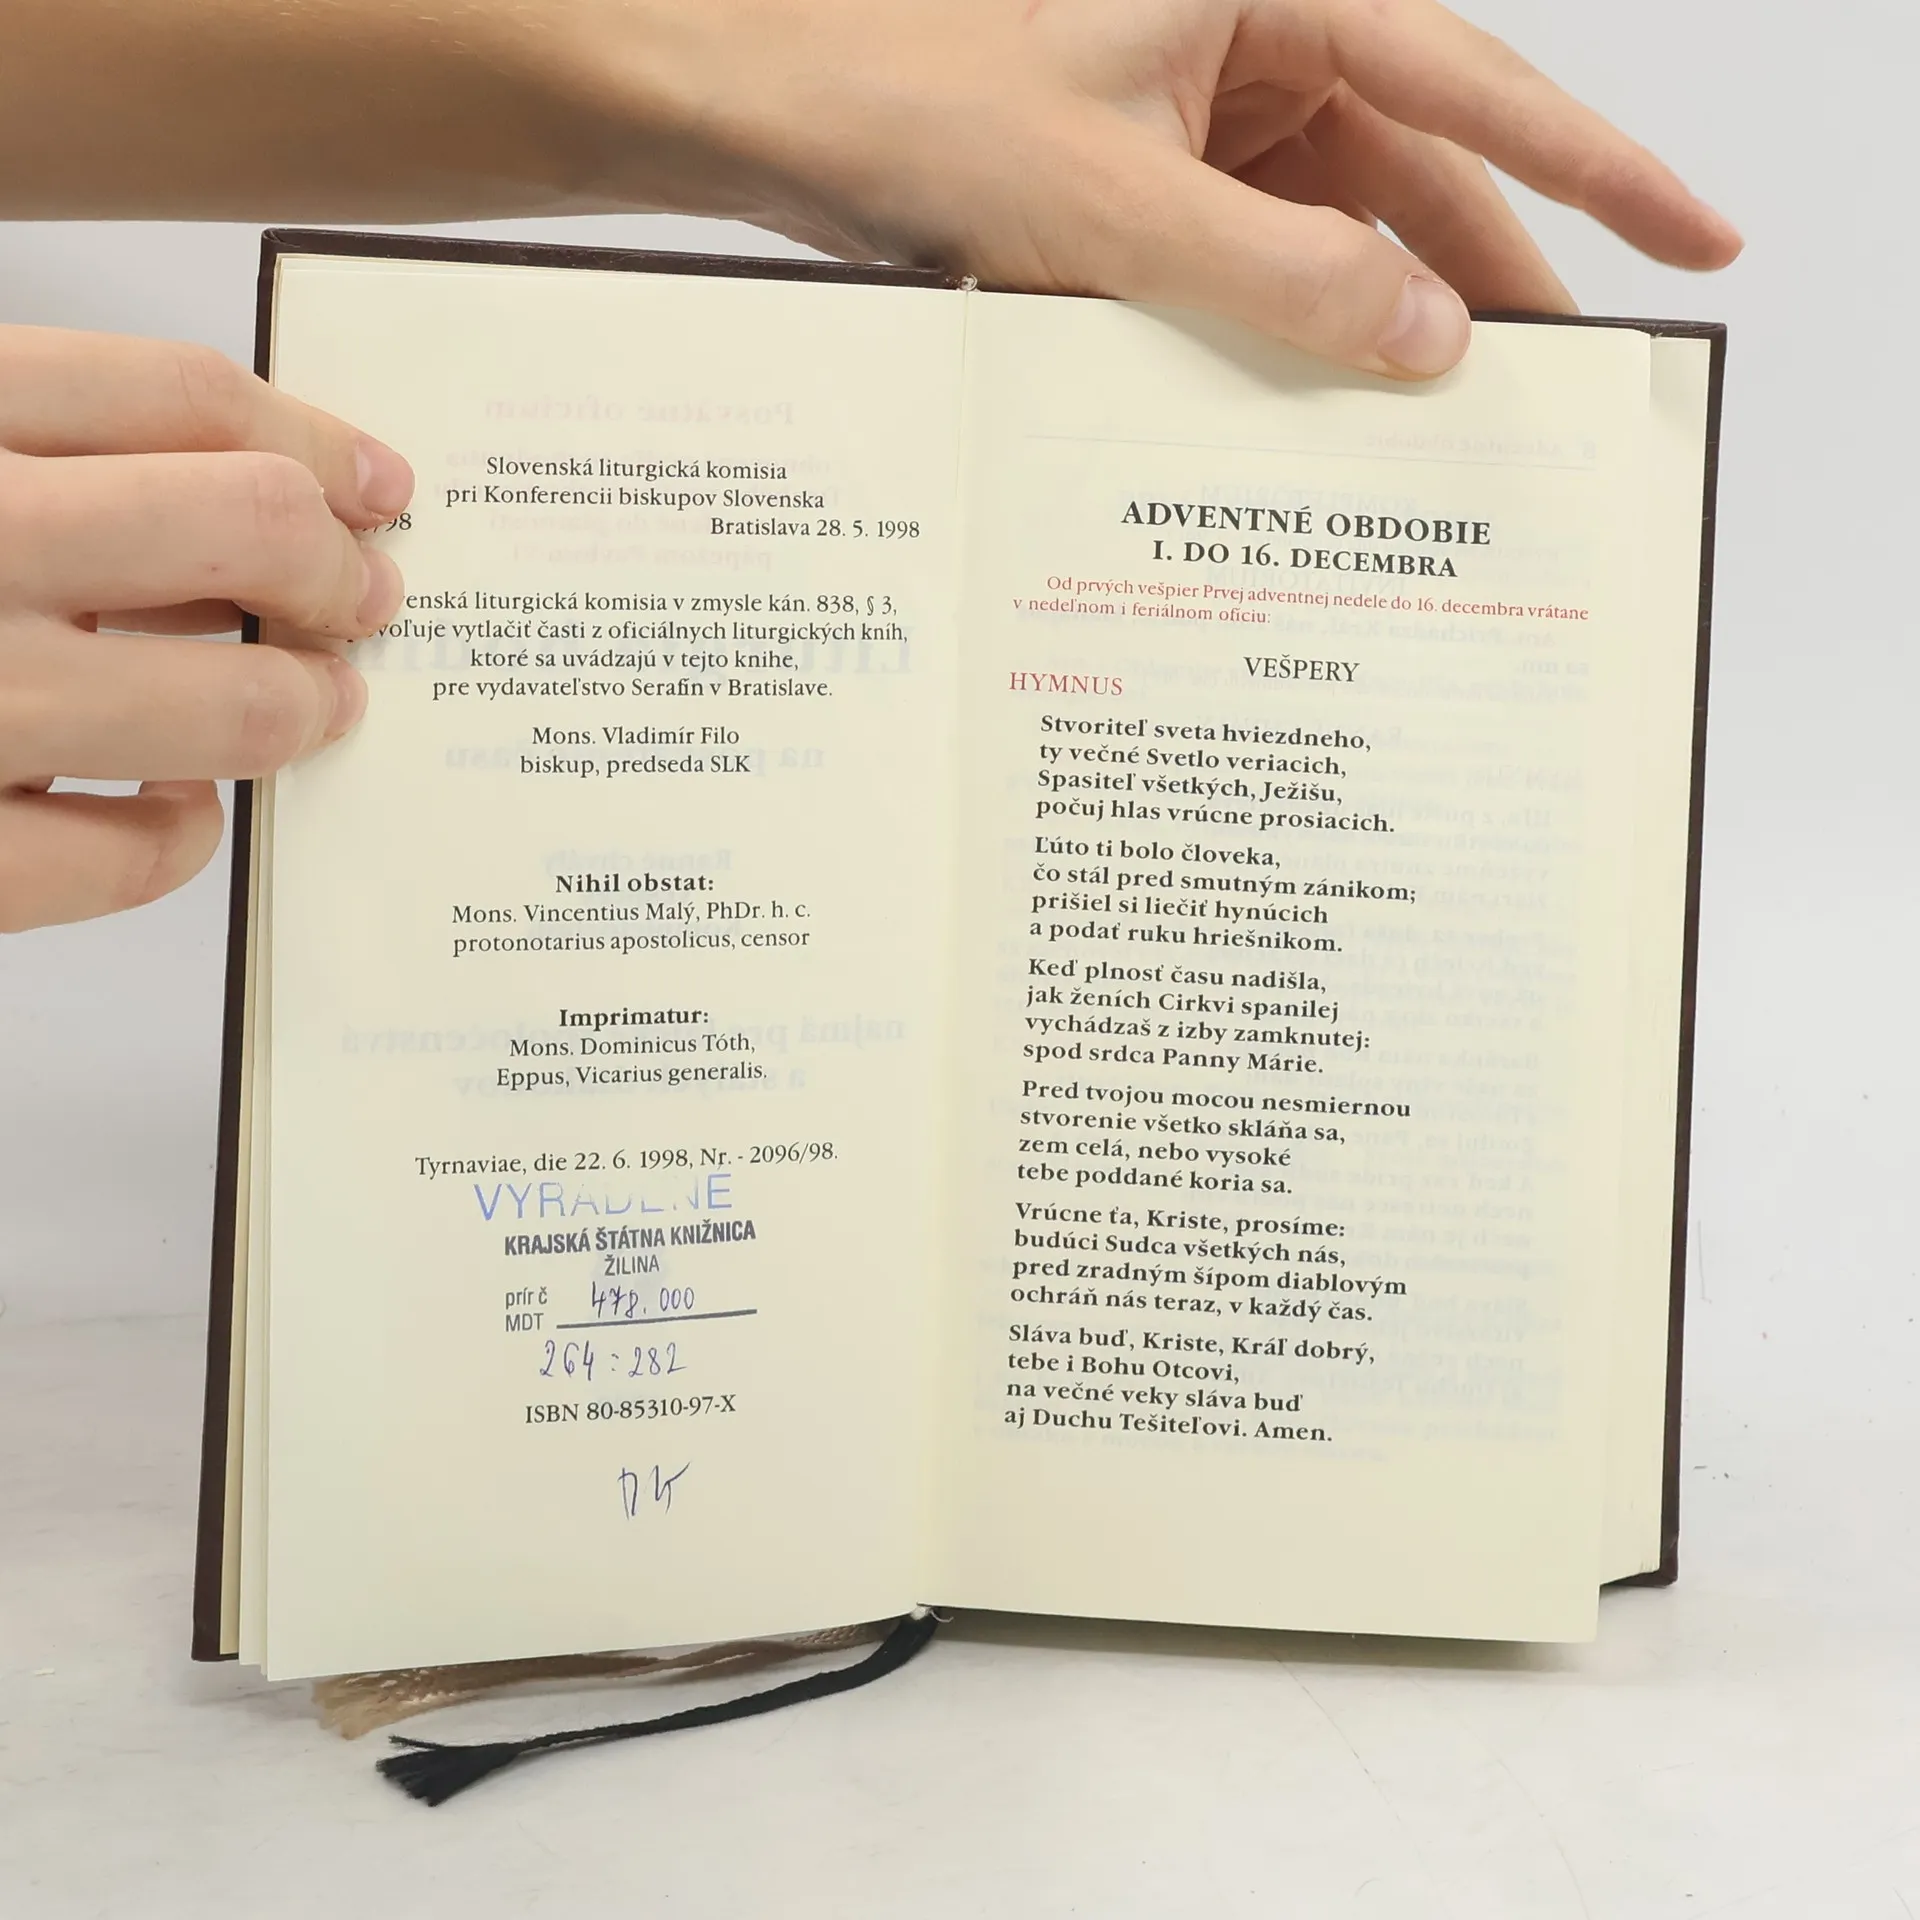 Slovenská liturgická komisia
pri Konferencii biskupov Slovenska
/98 Bratislava 28. 5. 1998
enská liturgická komisia v zmysle kán. 838, § 3,
voľuje vytlačiť časti z oficiálnych liturgických kníh,
ktoré sa uvádzajú v tejto knihe,
pre vydavateľstvo Serafín v Bratislave.
Mons. Vladimír Filo
biskup, predseda SLK
Nihil obstat:
Mons. Vincentius Malý, PhDr. h. c.
protonotarius apostolicus, censor
Imprimatur:
Mons. Dominicus Tóth,
Eppus, Vicarius generalis.
Tyrnaviae, die 22. 6. 1998, Nr. - 2096/98.
VYRADENÉ
KRAJSKÁ ŠTÁTNA KNIŽNICA
ŽILINA
prír č 478.000
MDT
264:282
ISBN 80-85310-97-X
ADVENTNÉ OBDOBIE
I. DO 16. DECEMBRA
Od prvých vešpier Prvej adventnej nedele do 16. decembra vrátane
v nedeľnom i feriálnom ofíciu:
VEŠPERY
HYMNUS
Stvoriteľ sveta hviezdneho,
ty večné Svetlo veriacich,
Spasiteľ všetkých, Ježišu,
počuj hlas vrúcne prosiacich.
Ľúto ti bolo človeka,
čo stál pred smutným zánikom;
prišiel si liečiť hynúcich
a podať ruku hriešnikom.
Keď plnosť času nadišla,
jak ženích Cirkvi spanilej
vychádzaš z izby zamknutej:
spod srdca Panny Márie.
Pred tvojou mocou nesmiernou
stvorenie všetko skláňa sa,
zem celá, nebo vysoké
tebe poddané koria sa.
Vrúcne ťa, Kriste, prosíme:
budúci Sudca všetkých nás,
pred zradným šípom diablovým
ochráň nás teraz, v každý čas.
Sláva buď, Kriste, Kráľ dobrý,
tebe i Bohu Otcovi,
na večné veky sláva buď
aj Duchu Tešiteľovi. Amen.